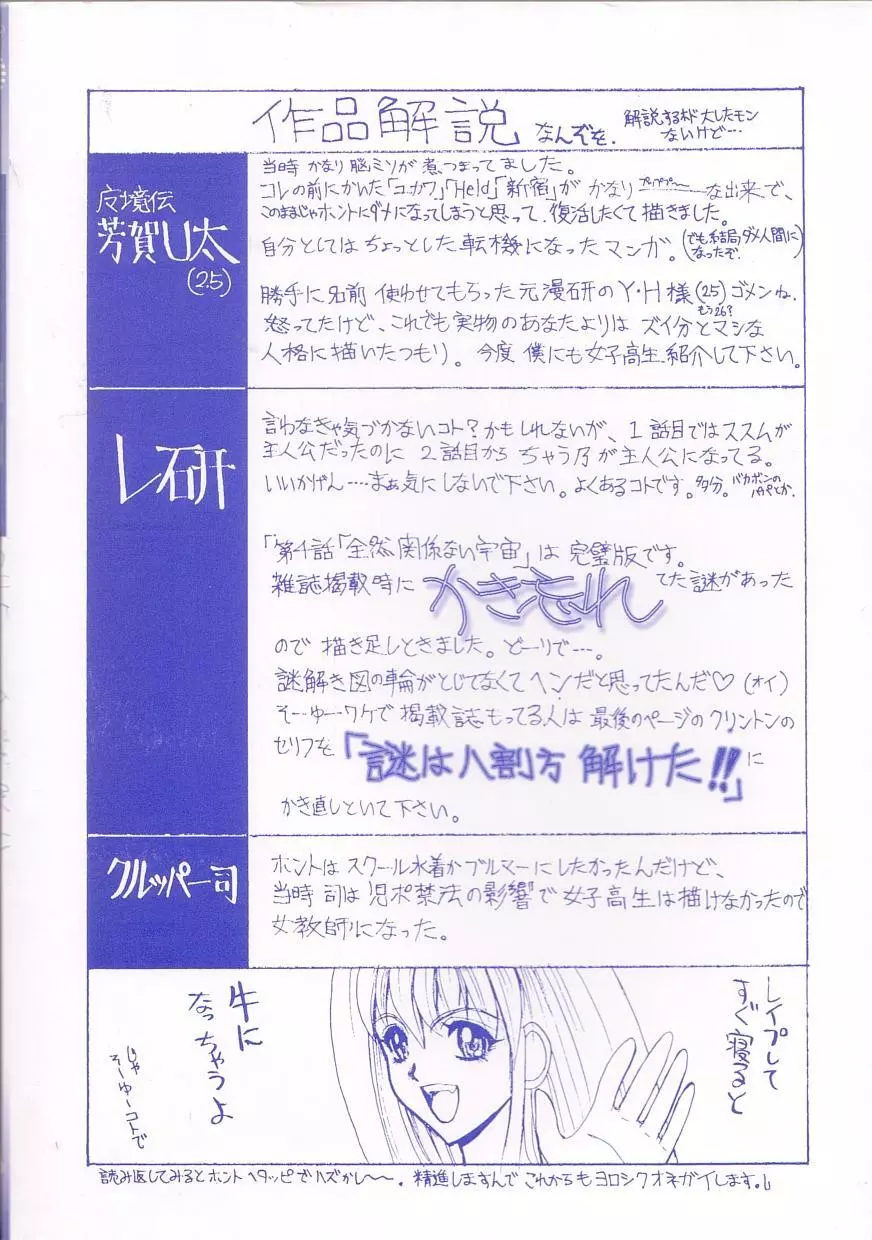 作品解説 なんぞを。
解説するホド大したモン
ないけど…
反境伝
芳賀U太
(25)
当時 かなり脳ミソが煮つまってました。
コレの前にかいた「ユカワ」「Held」「新宿」が かなり な出来で、
このままじゃホントにダメになってしまうと思って、復活したくて描きました。
自分としてはちょっとした転機になったマンガ。(でも結局ダメ人間に
なったぞ。)
勝手に名前 使わせてもらった元漫研のY・H様(25)ゴメンね。
もう26?
怒ってたけど、これでも実物のあなたよりは ズイ分とマシな
人格に描いたつもり。今度 僕にも女子高生 紹介して下さい。
レ研
言わなきゃ気づかないコト?かもしれないが、1話目ではススムが
主人公だったのに 2話目から ちゃう乃が主人公になってる。
いいかげん……まぁ気にしないで下さい。よくあるコトです。多分。バカボンの
パパとか。
「第4話「全然関係ない宇宙」は 完璧版です。
雑誌掲載時に かき忘れ てた謎があった
ので 描き足しときました。どーりで…。
謎解き図の輪がとじてなくてヘンだと思ってたんだ♡(オイ)
そーゆーワケで 掲載誌もってる人は 最後のページのクリントンの
セリフを「謎は八割方 解けた!!」に
かき直しといて下さい。
クルッパー司
ホントは スクール水着かブルマーにしたかったんだけど、
当時 司は"児ポ禁法の影響"で女子高生は描けなかったので
女教師になった。
レイプして
すぐ寝ると
牛に
なっちゃうよ
じゃ
そーゆーコトで
読み返してみるとホント ヘタッピでハズかし〜〜。精進しますんで これからも ヨロシクオネガイします。